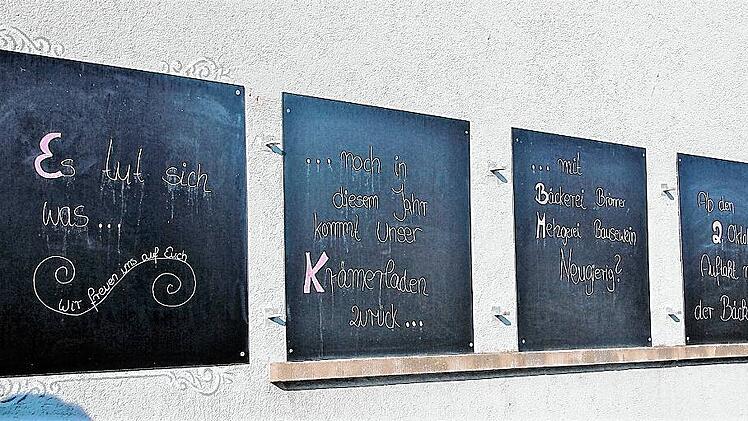 Es tut sich
was...
Wir freuen uns auf Euch
... noch in
diesem Jahr
kommt Unser
Krämerladen
zurück...
... mit
Bäckerei Brönner
Metzgerei Bausewein
Neugierig?
Ab den
2
Auftakt
der